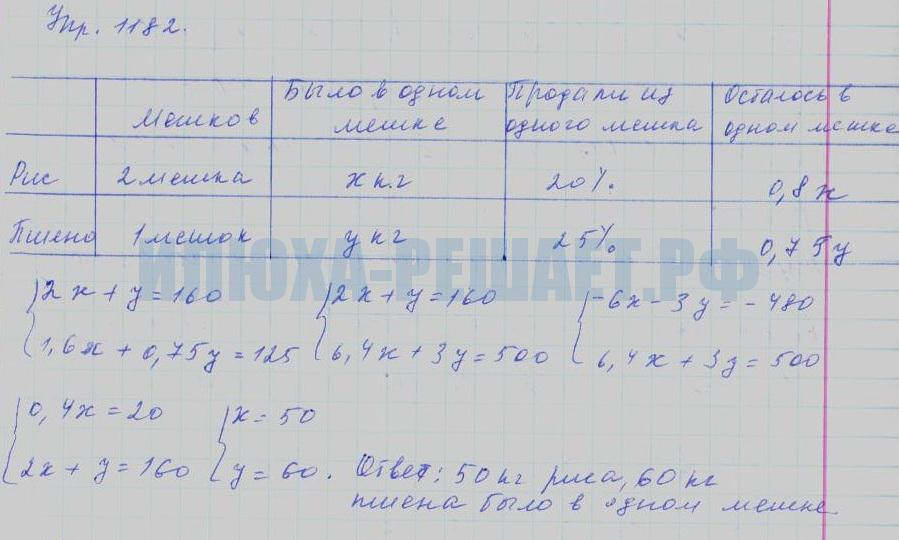 Упр. 1182.
Мешков | Было в одном мешке | Продали из одного мешка | Осталось в одном мешке
Рис | 2 мешка | x кг | 20% | 0,8x
Пшено | 1 мешок | y кг | 25% | 0,75y
ИЛЮХА-РЕШАЕТ.РФ
{2x + y = 160 {2x + y = 160 {-6x - 3y = -480
{1,6x + 0,75y = 125 {6,4x + 3y = 500 {6,4x + 3y = 500
{0,4x = 20 {x = 50
{2x + y = 160 {y = 60. Ответ: 50 кг риса, 60 кг
пшена было в одном мешке